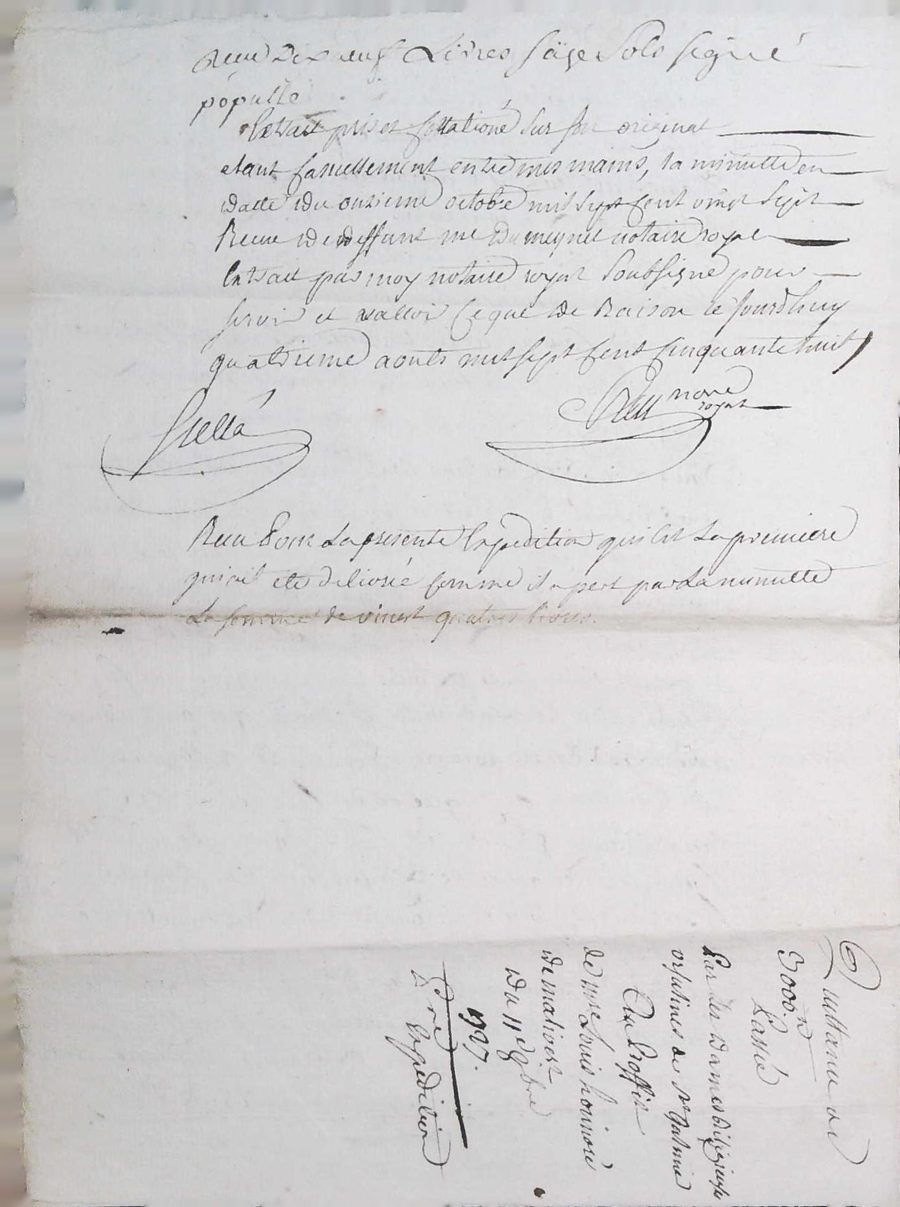 Receu Dix neuf Livres Saize Sols signé
populle
Extrait pris et Collationé sur son original
etant Casuellement entre mes mains, la minutte en
datte du onzieme octobre mil sept Cent vingt Sept
Receue de deffunt me dumeynet notaire royal
Extrait par moy notaire royal Soubsigné pour
servir et valloir Ce que de Raison Ce Jourdhuy
quatrieme aouts mil sept Cent Cinquante huit
notre
royal
Receu Pour La presente Expedition qui est La premiere
qui ait ete delivrée comme il apert par La minutte
La somme de vincet quatres livres.
Quittance de
3000 ll
Passé
Par Les Dames Religieuses
orphelines de St
Au Proffit
de mre Louis honnoré
de malivert
du 11 8bre
1727.
1re
Expedition